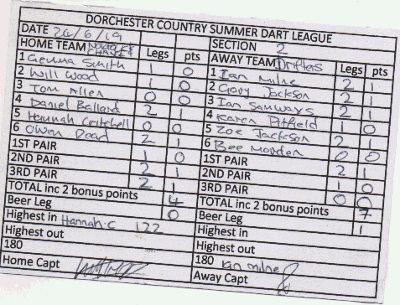 DORCHESTER COUNTRY SUMMER DART LEAGUE
DATE 26/6/19 SECTION 2
HOME TEAM Legs pts AWAY TEAM Drifters Legs pts
1 Gemma Smith 1 0 1 Ian Milne 2 1
2 Will Wood 1 0 2 Gary Jackson 2 1
3 Tom Allen 0 0 3 Ian Samways 2 1
4 Daniel Ballard 2 1 4 Karen Pitfield 1 0
5 Hannah Critchell 0 0 5 Zoe Jackson 2 1
6 Owen Dead 2 1 6 Bee Morden 0 0
1ST PAIR 1 0 1ST PAIR 2 1
2ND PAIR 2 1 2ND PAIR 1 0
3RD PAIR 2 1 3RD PAIR 0 0
TOTAL inc 2 bonus points 4 TOTAL inc 2 bonus points 7
Beer Leg 0 Beer Leg 1
Highest in Hannah-C 122 Highest in
Highest out Highest out
180 180 Ian Milne
Home Capt Away Capt